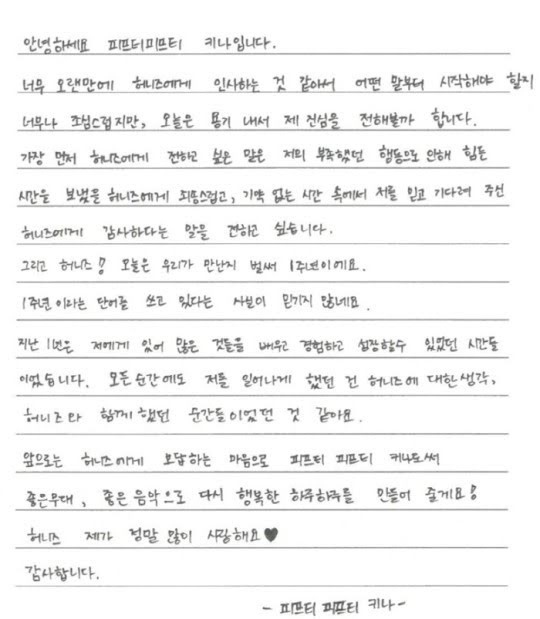 안녕하세요 피프티피프티 키나입니다.
너무 오랜만에 허니즈에게 인사하는 것 같아서 어떤 말부터 시작해야 할지
너무나 조심스럽지만, 오늘은 용기 내서 제 진심을 전해볼까 합니다.
가장 먼저 허니즈에게 전하고 싶은 말은 저의 부족했던 행동으로 인해 힘든
시간을 보냈을 허니즈에게 죄송스럽고, 기약 없는 시간 속에서 저를 믿고 기다려 주신
허니즈에게 감사하다는 말을 전하고 싶습니다.
그리고 허니즈! 오늘은 우리가 만난지 벌써 1주년이에요.
1주년 이라는 단어를 쓰고 있다는 사실이 믿기지 않네요.
지난 1년은 저에게 있어 많은 것들을 배우고 경험하고 성장할수 있었던 시간들
이었습니다. 모든순간에도 저를 일어나게 했던 건 허니즈에 대한생각,
허니즈와 함께 했던 순간들이었던 것 같아요.
앞으로는 허니즈에게 보답하는 마음으로 피프티 피프티 키나로써
좋은무대, 좋은 음악으로 다시 행복한 하루하루를 만들어 줄게요!
허니즈 제가 정말 많이 사랑해요♥
감사합니다.
- 피프티 피프티 키나 -